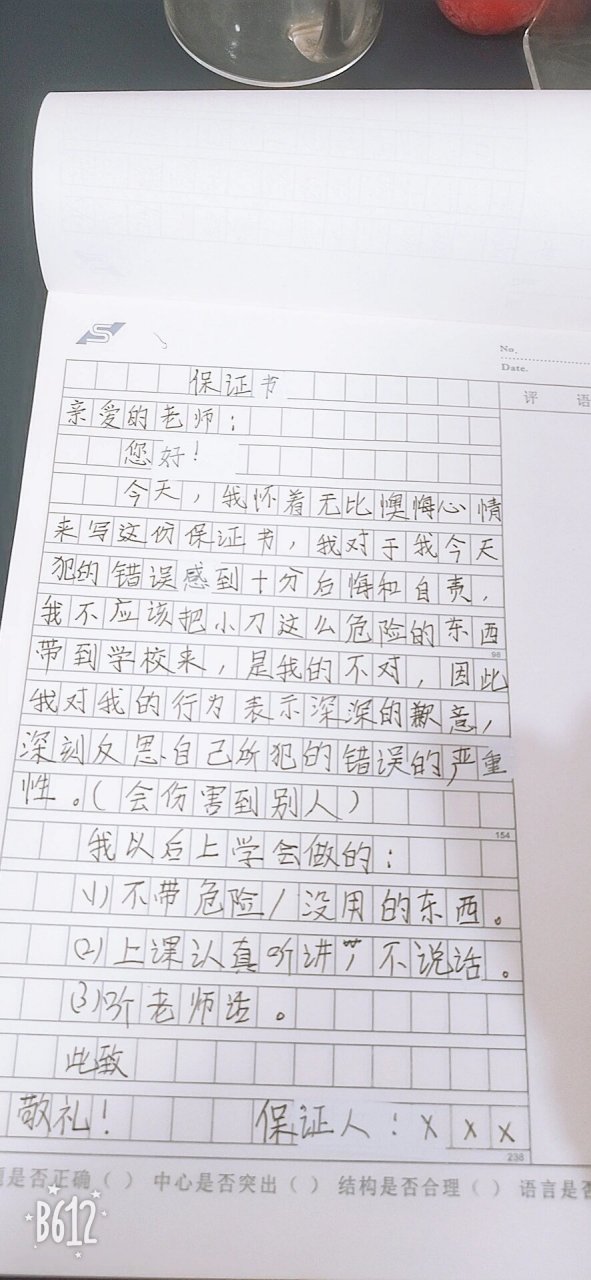 No.
Date.
评 语
保证书
亲爱的老师：
您好！
今天，我怀着无比懊悔心情
来写这份保证书，我对于我今天
犯的错误感到十分后悔和自责，
我不应该把小刀这么危险的东西
带到学校来，是我的不对，因此
98
我对我的行为表示深深的歉意，
深刻反思自己所犯的错误的严重
性。（会伤害到别人）
154
我以后上学会做的：
(1)不带危险/没用的东西。
(2)上课认真听讲，不说话。
(3)听老师话。
此致
敬礼！ 保证人：X X X
238
是否正确（ ） 中心是否突出（ ） 结构是否合理（ ） 语言是否
B612